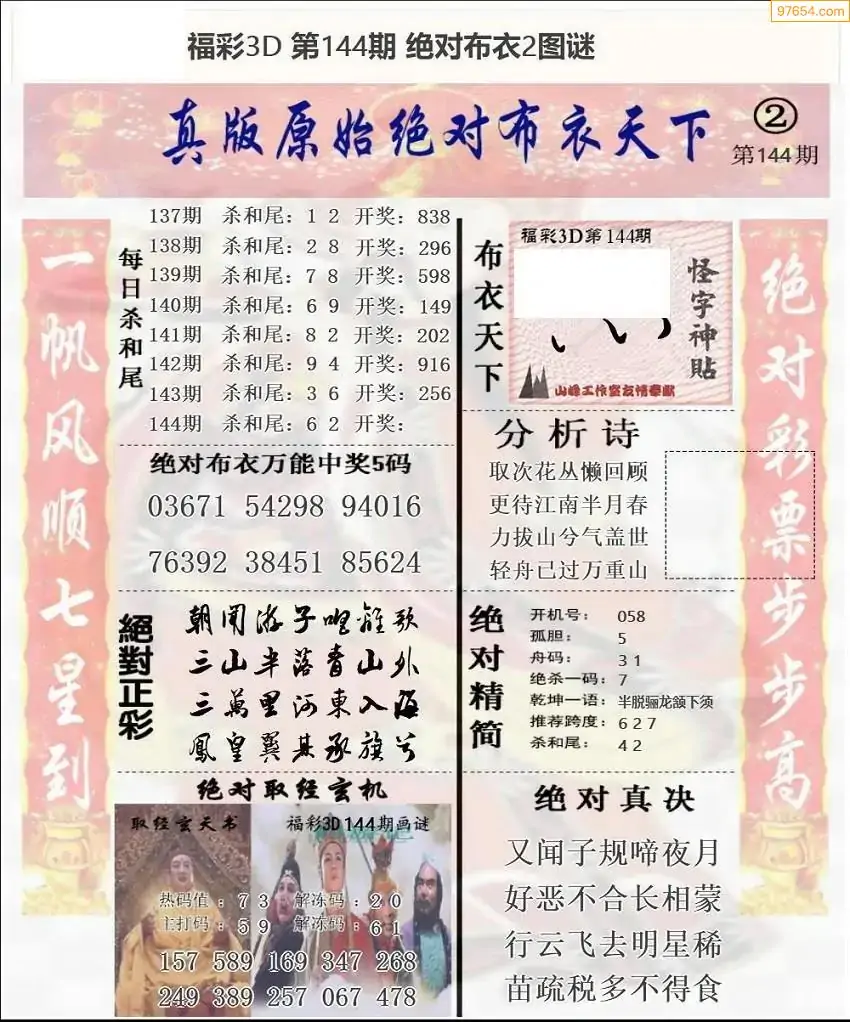 97654.com
福彩3D 第144期 绝对布衣2图谜
真版原始绝对布衣天下
②
第144期
一帆风顺七星到
每日杀和尾
137期 杀和尾：1 2 开奖：838
138期 杀和尾：2 8 开奖：296
139期 杀和尾：7 8 开奖：598
140期 杀和尾：6 9 开奖：149
141期 杀和尾：8 2 开奖：202
142期 杀和尾：9 4 开奖：916
143期 杀和尾：3 6 开奖：256
144期 杀和尾：6 2 开奖：
绝对布衣万能中奖5码
03671 54298 94016
76392 38451 85624
絕對正彩
朝闻游子唱离歌
三山半落青山外
三萬里河東入海
鳳皇翼其承旗兮
绝对取经玄机
取经玄天书
福彩3D144期画谜
热码值：7 3 解冻码：2 0
主打码：5 9 解冻码：6 1
157 589 169 347 268
249 389 257 067 478
布衣天下
福彩3D第144期
怪字神贴
山峰工作室友情奉献
分析诗
取次花丛懒回顾
更待江南半月春
力拔山兮气盖世
轻舟已过万重山
绝对精简
开机号： 058
孤胆： 5
舟码： 3 1
绝杀一码：7
乾坤一语：半脱骊龙颔下须
推荐跨度：6 2 7
杀和尾： 4 2
绝对真决
又闻子规啼夜月
好恶不合长相蒙
行云飞去明星稀
苗疏税多不得食
绝对彩票步步高